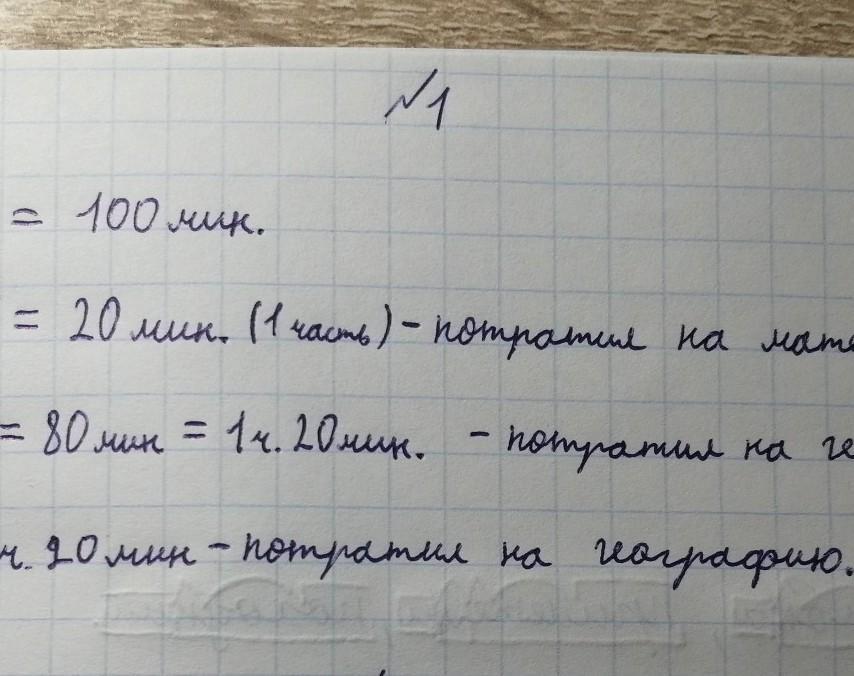 №1
= 100 мин.
= 20 мин. (1 часть) - потратил на мате
= 80 мин = 1 ч. 20 мин. - потратил на ге
ч. 20 мин - потратил на географию.